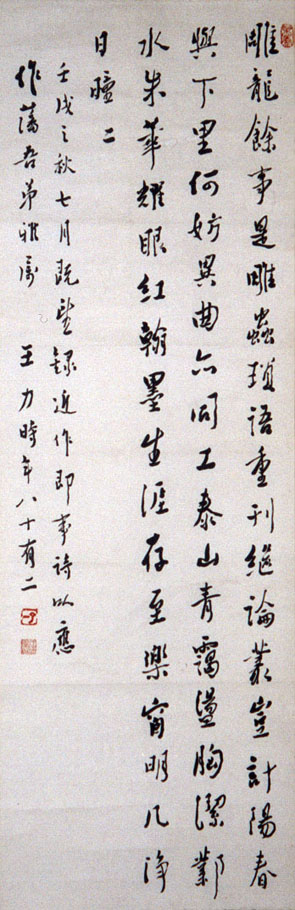 雕龍餘事是雕蟲瑣語重刊繼論叢豈計陽春
與下里何妨異曲亦同工泰山青靄盪胸潔鄴
水朱華耀眼紅翰墨生涯存至樂窗明几淨
日曈二
壬戌之秋七月既望録近作即事詩以應
作藩吾弟雅屬 王力時年八十有二